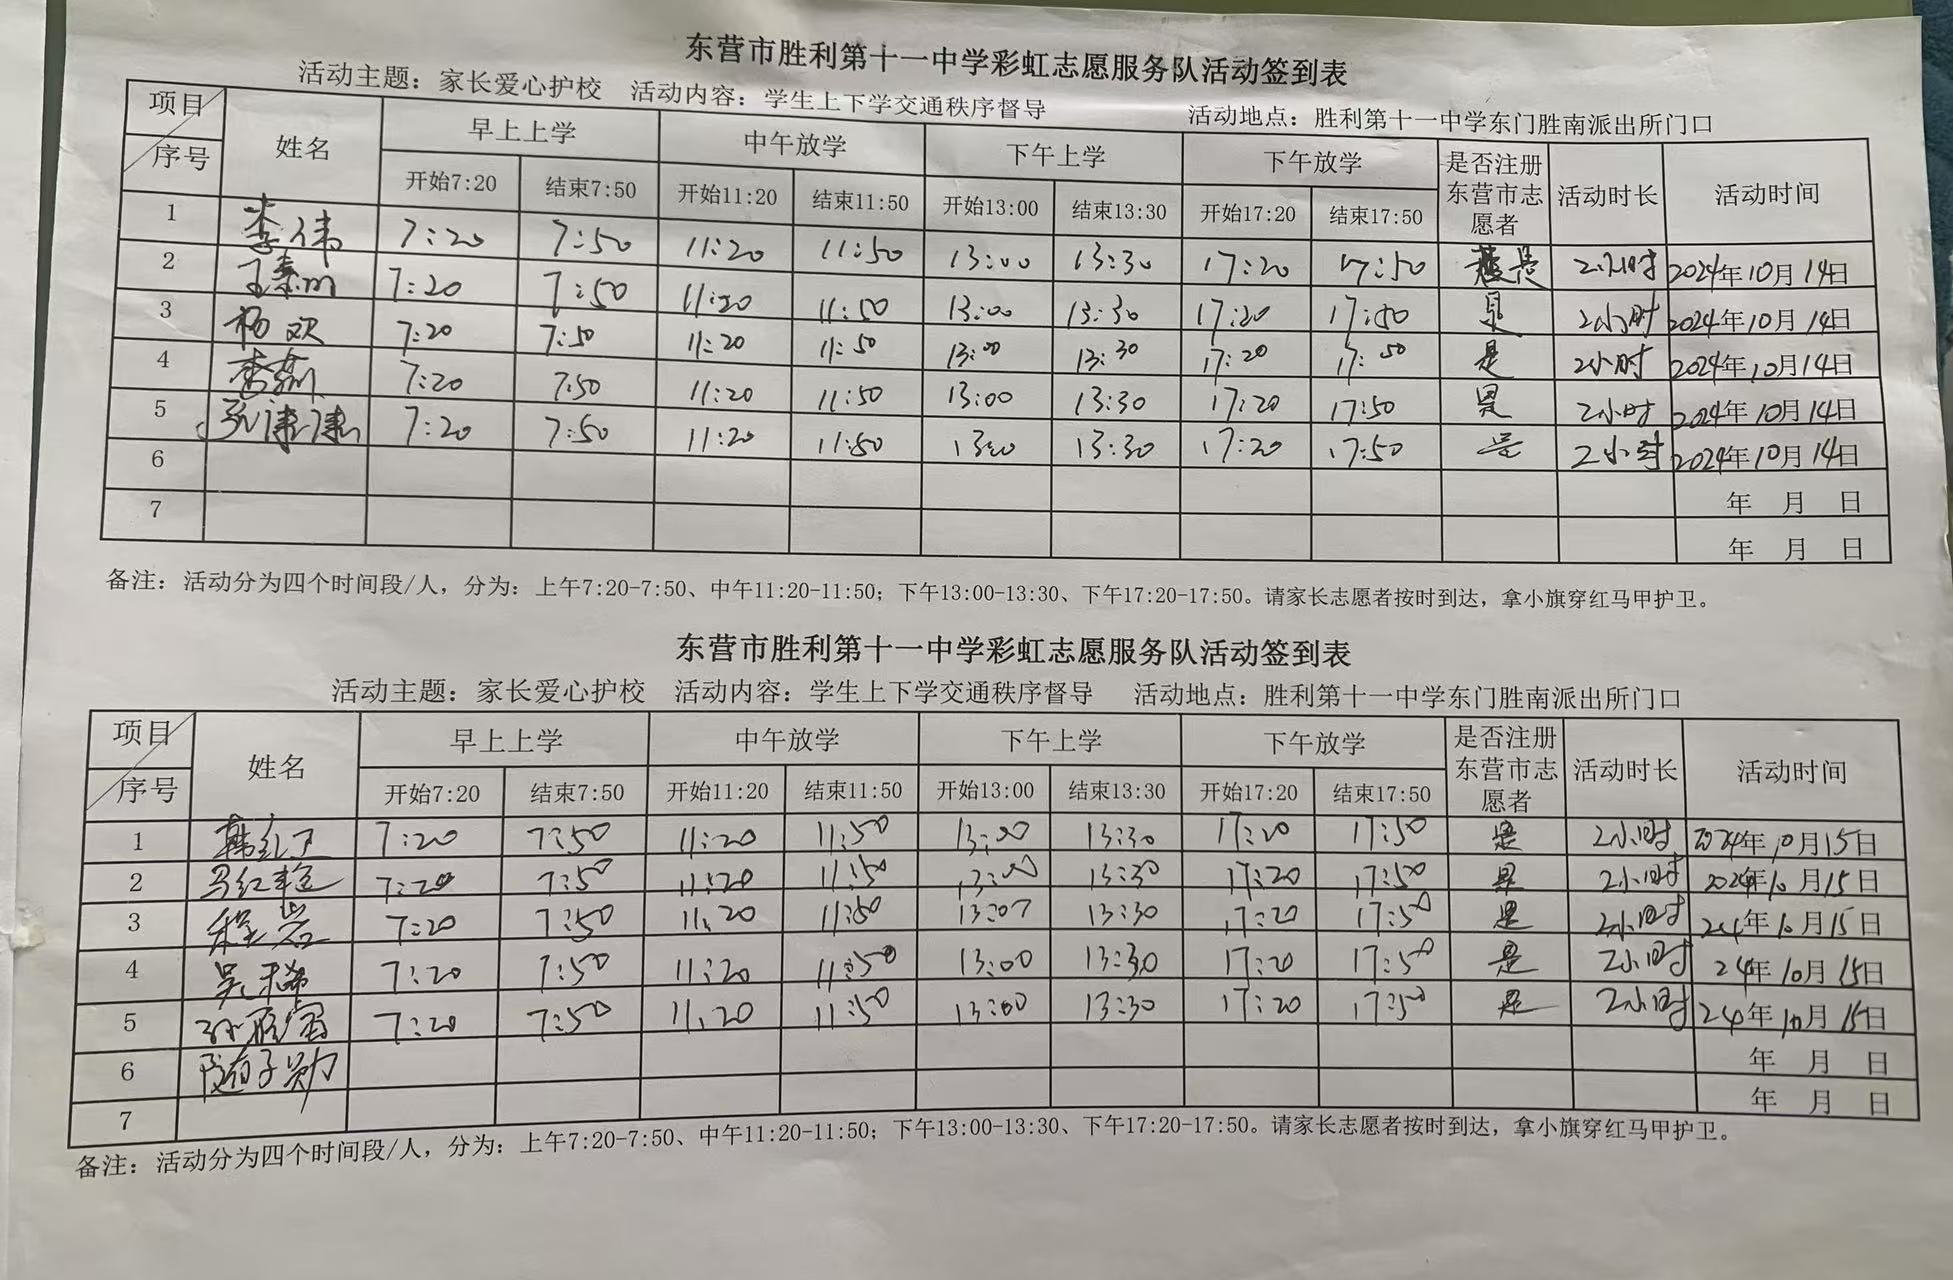 东营市胜利第十一中学彩虹志愿服务队活动签到表
活动主题：家长爱心护校 活动内容：学生上下学交通秩序督导 活动地点：胜利第十一中学东门胜南派出所门口
项目 序号 姓名 早上上学 中午放学 下午上学 下午放学 是否注册东营市志愿者 活动时长 活动时间
开始7:20 结束7:50 开始11:20 结束11:50 开始13:00 结束13:30 开始17:20 结束17:50
1 李伟 7:20 7:50 11:20 11:50 13:00 13:30 17:20 17:50 是 2小时 2024年10月14日
2 7:20 7:50 11:20 11:50 13:00 13:30 17:20 17:50 是 2小时 2024年10月14日
3 杨欢 7:20 7:50 11:20 11:50 13:00 13:30 17:20 17:50 是 2小时 2024年10月14日
4 李 7:20 7:50 11:20 11:50 13:00 13:30 17:20 17:50 是 2小时 2024年10月14日
5 7:20 7:50 11:20 11:50 13:00 13:30 17:20 17:50 是 2小时 2024年10月14日
6 年 月 日
7 年 月 日
备注：活动分为四个时间段/人，分为：上午7:20-7:50、中午11:20-11:50；下午13:00-13:30、下午17:20-17:50。请家长志愿者按时到达，拿小旗穿红马甲护卫。
东营市胜利第十一中学彩虹志愿服务队活动签到表
活动主题：家长爱心护校 活动内容：学生上下学交通秩序督导 活动地点：胜利第十一中学东门胜南派出所门口
项目 序号 姓名 早上上学 中午放学 下午上学 下午放学 是否注册东营市志愿者 活动时长 活动时间
开始7:20 结束7:50 开始11:20 结束11:50 开始13:00 结束13:30 开始17:20 结束17:50
1 韩红卫 7:20 7:50 11:20 11:50 13:00 13:30 17:20 17:50 是 2小时 2024年10月15日
2 马红 7:20 7:50 11:20 11:50 13:00 13:30 17:20 17:50 是 2小时 2024年10月15日
3 程岩 7:20 7:50 11:20 11:50 13:00 13:30 17:20 17:50 是 2小时 24年10月15日
4 吴 7:20 7:50 11:20 11:50 13:00 13:30 17:20 17:50 是 2小时 24年10月15日
5 孙 7:20 7:50 11:20 11:50 13:00 13:30 17:20 17:50 是 2小时 24年10月15日
6 年 月 日
7 年 月 日
备注：活动分为四个时间段/人，分为：上午7:20-7:50、中午11:20-11:50；下午13:00-13:30、下午17:20-17:50。请家长志愿者按时到达，拿小旗穿红马甲护卫。